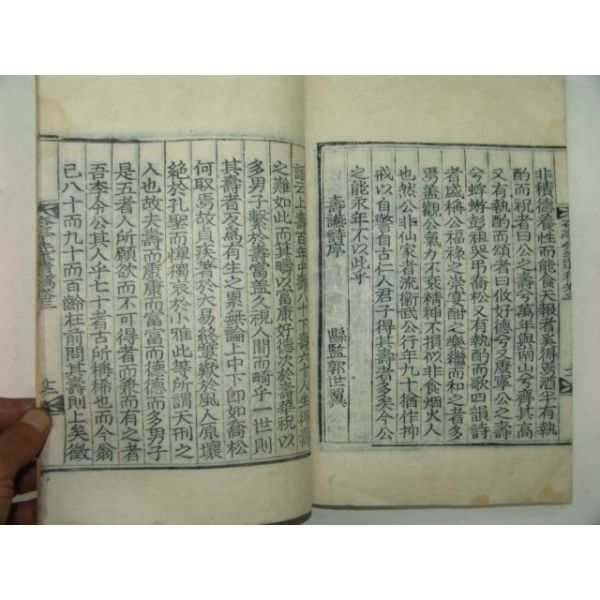 非積德養性而能食天報者奚得焉酒半有執
酌而祝者曰公之壽兮萬年與南山兮齊其高
又有執酌而頌者曰攸好德兮又康寧公之壽
兮蜉蝣彭祖哭弔喬松又有執酌而歌四韻詩
者盛稱公福祿之崇宴酣之樂繼而和之者多
焉盖觀公氣力不衰精神不損似非食烟火人
也然公非仙家者流衛武公行年九十猶作抑
戒以自警自古仁人君子得其壽者多矣今公
之能永年不以此乎
壽讌詩序
縣監郭世翼
語云上壽百年中壽八十下壽六十人生得壽
之難如此而其疇以富康好德次於壽華祝以
多男子繫於壽當盖久視人間而畸乎一世則
其壽者反爲有生之累無論上中下卽如喬松
何取焉故貞疾著於大易終窶歎於風人原壤
絶於孔聖而惸獨哀於小雅此等所謂天刑之
人也故夫壽而康康而富富而德德而多男子
是五者人所願欲而不可得者而兼而有之者
吾李令公其人乎七十者古所稱稀也而今翁
已八十而九十而百齡在前問其壽則上矣徵